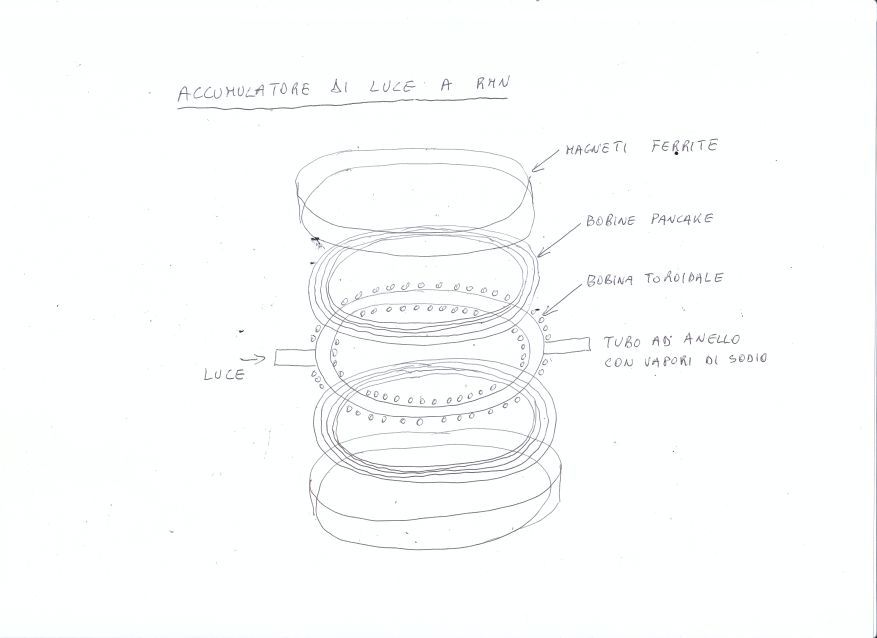 ACCUMULATORE DI LUCE A RMN
MAGNETI FERRITE
BOBINE PANCAKE
BOBINA TOROIDALE
TUBO AD ANELLO
CON VAPORI DI SODIO
LUCE